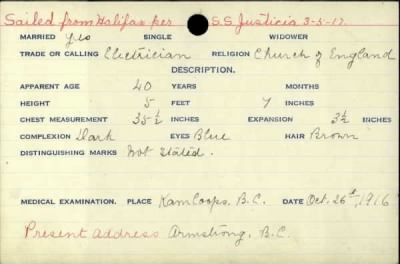 Sailed from Halifax per S.S. Justicia 3-5-17.
MARRIED Yes SINGLE WIDOWER
TRADE OR CALLING Electrician RELIGION Church of England
DESCRIPTION.
APPARENT AGE 40 YEARS MONTHS
HEIGHT 5 FEET 7 INCHES
CHEST MEASUREMENT 35½ INCHES EXPANSION 3½ INCHES
COMPLEXION Dark EYES Blue HAIR Brown
DISTINGUISHING MARKS Not Stated.
MEDICAL EXAMINATION. PLACE Kamloops. B.C. DATE Oct. 26th, 1916
Present address Armstrong, B.C.